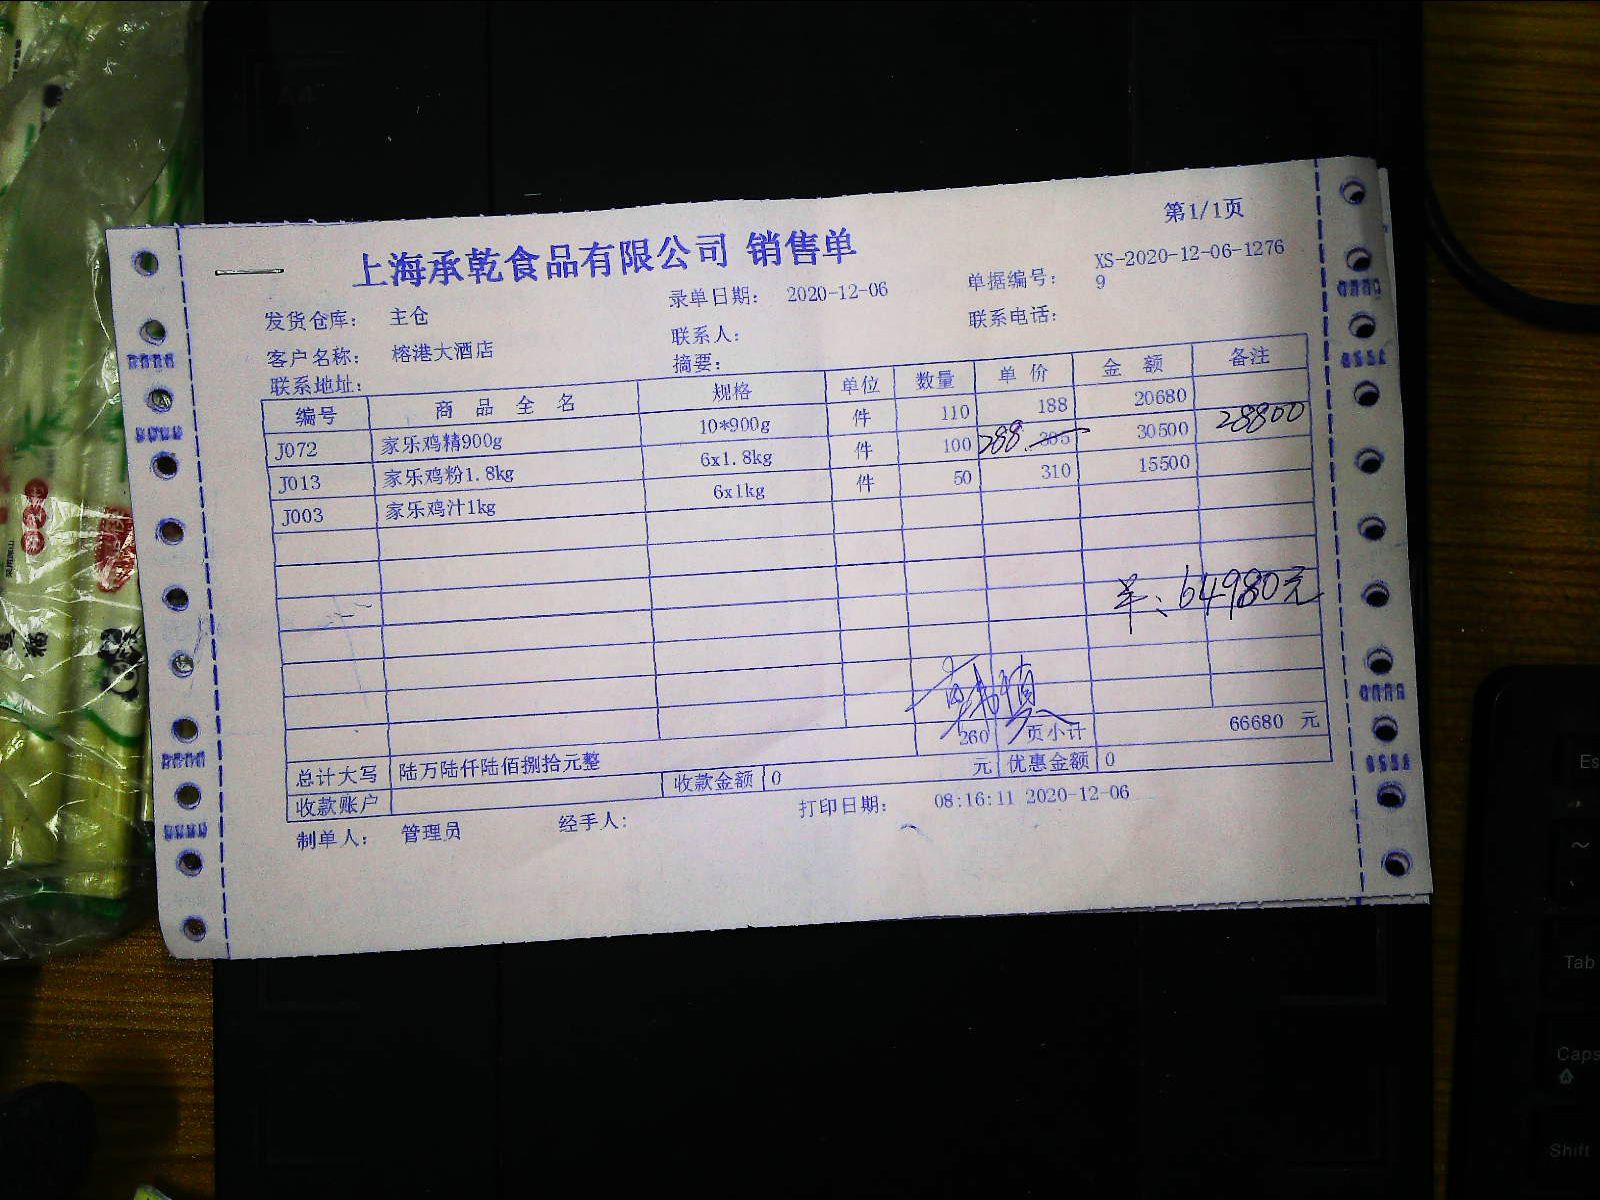 第1/1页
上海承乾食品有限公司 销售单
发货仓库： 主仓 录单日期： 2020-12-06 单据编号： XS-2020-12-06-1276
9
客户名称： 榕港大酒店 联系人： 联系电话：
联系地址： 摘要：
编号 商 品 全 名 规格 单位 数量 单 价 金 额 备注
J072 家乐鸡精900g 10*900g 件 110 188 20680
J013 家乐鸡粉1.8kg 6x1.8kg 件 100 288. 305 30500 28800
J003 家乐鸡汁1kg 6x1kg 件 50 310 15500
64980元
260 页小计 66680 元
总计大写 陆万陆仟陆佰捌拾元整
收款账户 收款金额 0 元 优惠金额 0
制单人： 管理员 经手人： 打印日期： 08:16:11 2020-12-06
Es
Tab
Caps
Shift